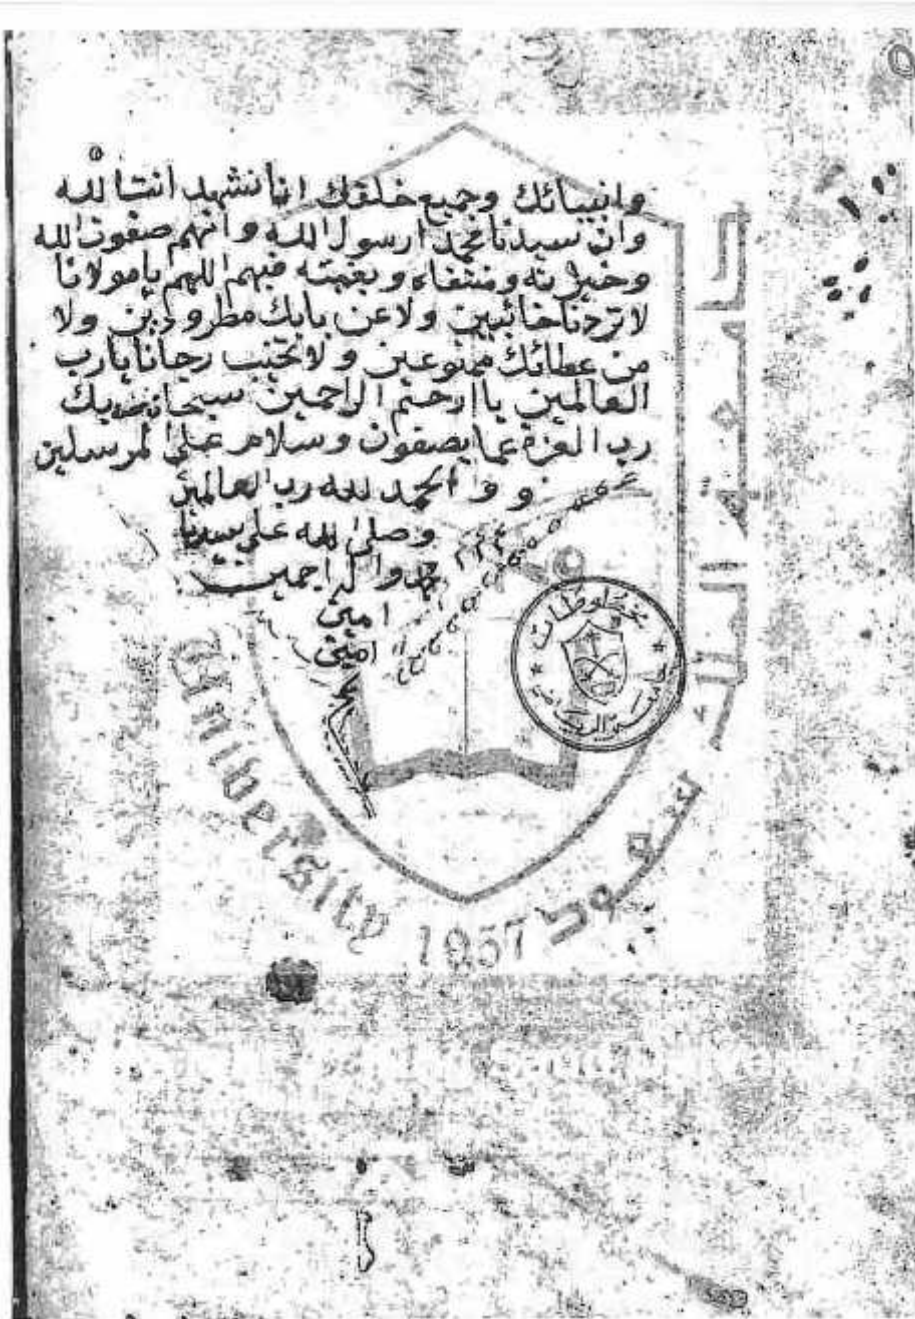 وانبيائك وجميع خلقك اننا نشهد انت الله
وان سيدنا محمدا رسول الله وانهم صفوت الله
وخيرته ومنتقاه وبغيته فيهم اللهم يامولانا
لا تردنا خائبين ولاعن بابك مطرودين ولا
من عطائك ممنوعين ولا تخيب رجانا يارب
العالمين يا ارحم الراحمين سبحان ربك
رب العزة عما يصفون وسلام على المرسلين
و والحمد لله رب العالمين
وصلى الله على سيدنا
محمد واله اجمعين
امين
امين
جامعة الملك سعود
University 1957
مخطوطات
جامعة الرياض